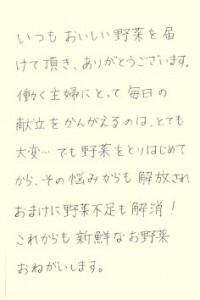 いつも おいしい野菜を届
けて頂き、ありがとうございます。
働く主婦にとって 毎日の
献立をかんがえるのは、とても
大変… でも野菜をとりはじめて
から、その悩みからも 解放され
おまけに野菜不足も解消！
これからも 新鮮なお野菜
おねがいします。